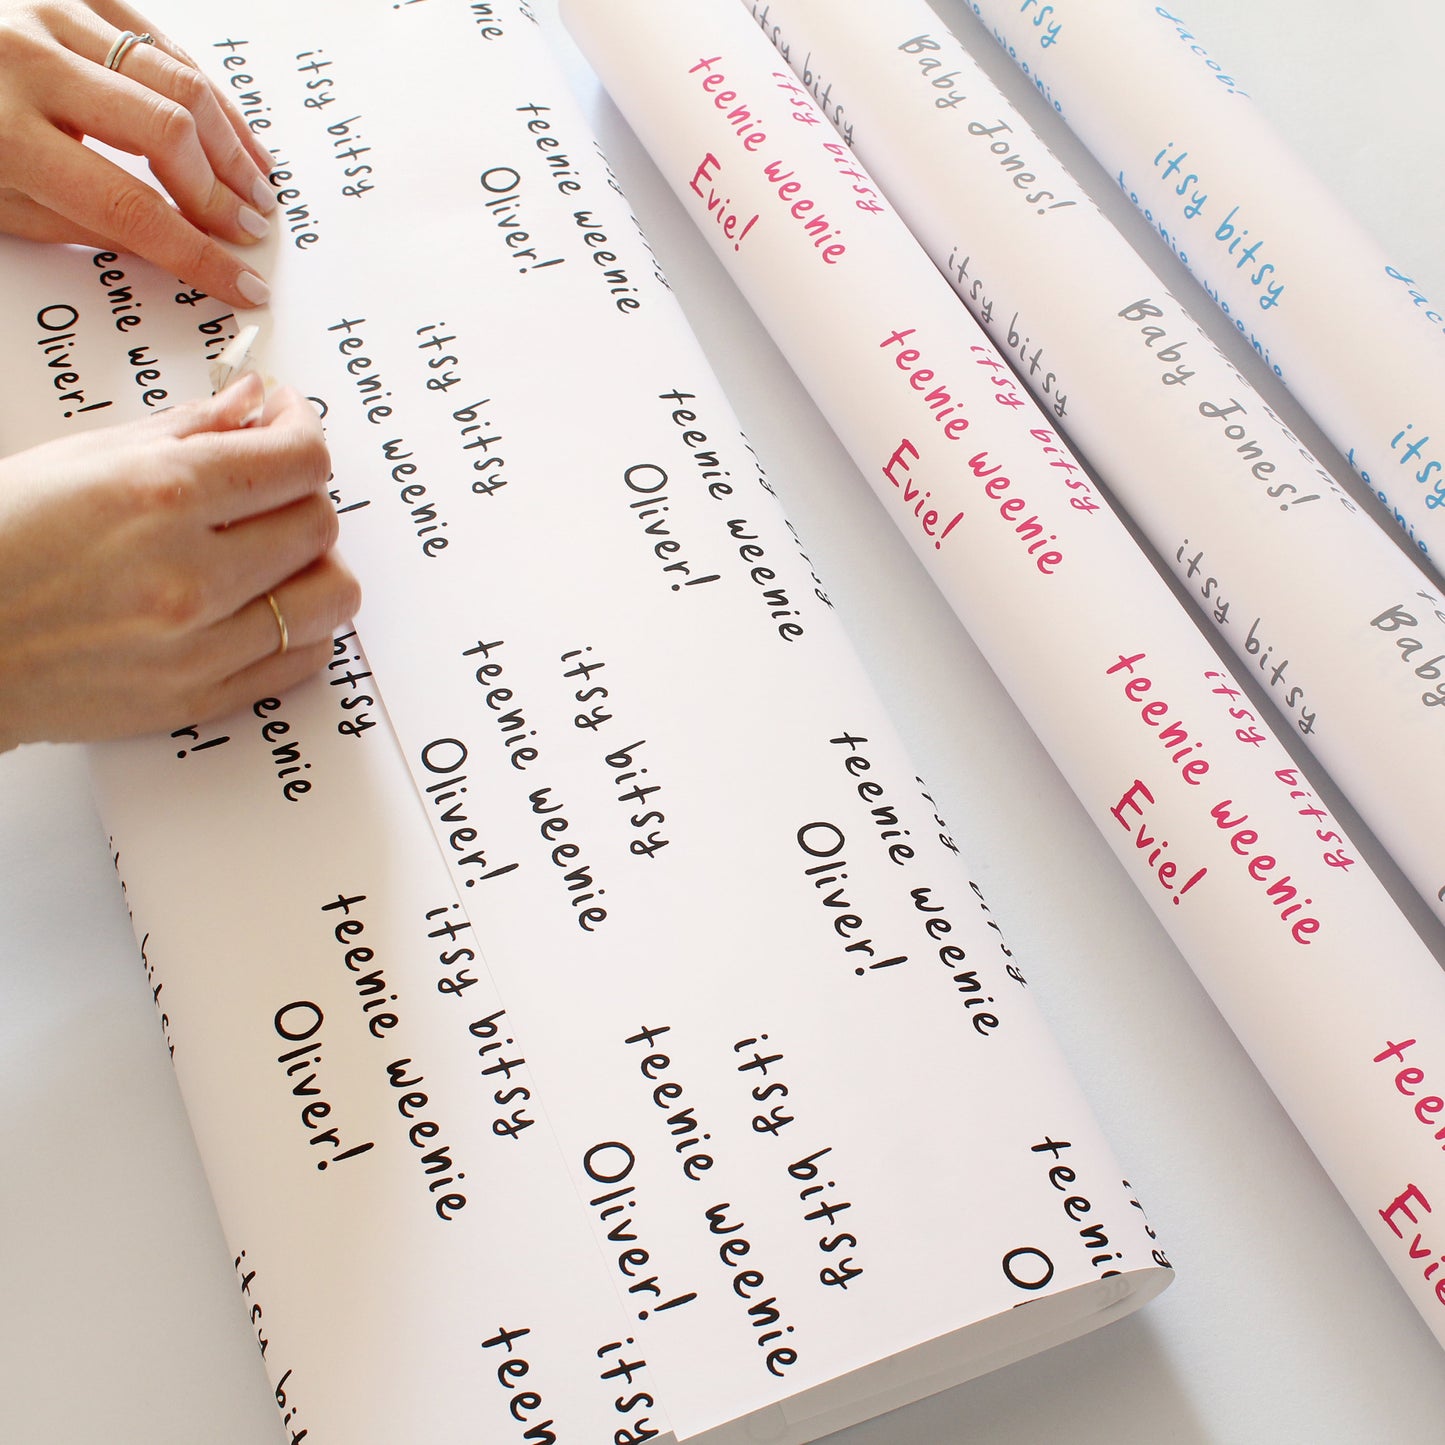 itsy bitsy
teenie weenie
Oliver!
itsy bitsy
teenie weenie
Oliver!
itsy bitsy
teenie weenie
Oliver!
itsy bitsy
teenie weenie
Oliver!
itsy bitsy
teenie weenie
Oliver!
itsy bitsy
teenie weenie
Oliver!
teenie weenie
Oliver!
teenie weenie
Oliver!
teenie weenie
Oliver!
itsy bitsy
teenie weenie
Evie!
itsy bitsy
teenie weenie
Evie!
itsy bitsy
teenie weenie
Evie!
itsy bitsy
Baby Jones!
itsy bitsy
teenie weenie
Baby Jones!
itsy bitsy
Baby
Jacob!
itsy bitsy
teenie weenie
itsy